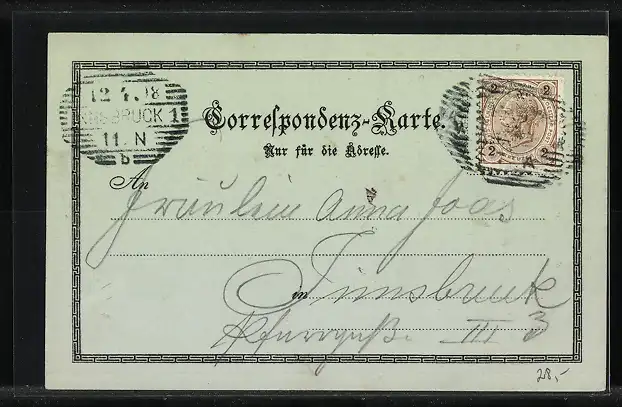 12 4 98
INNSBRUCK 1
11. N
b
2 2
2 2
Correspondenz-Karte.
Nur für die Adresse.
An
Fräulein Anna Joas
in Innsbruck
III 3
28,-